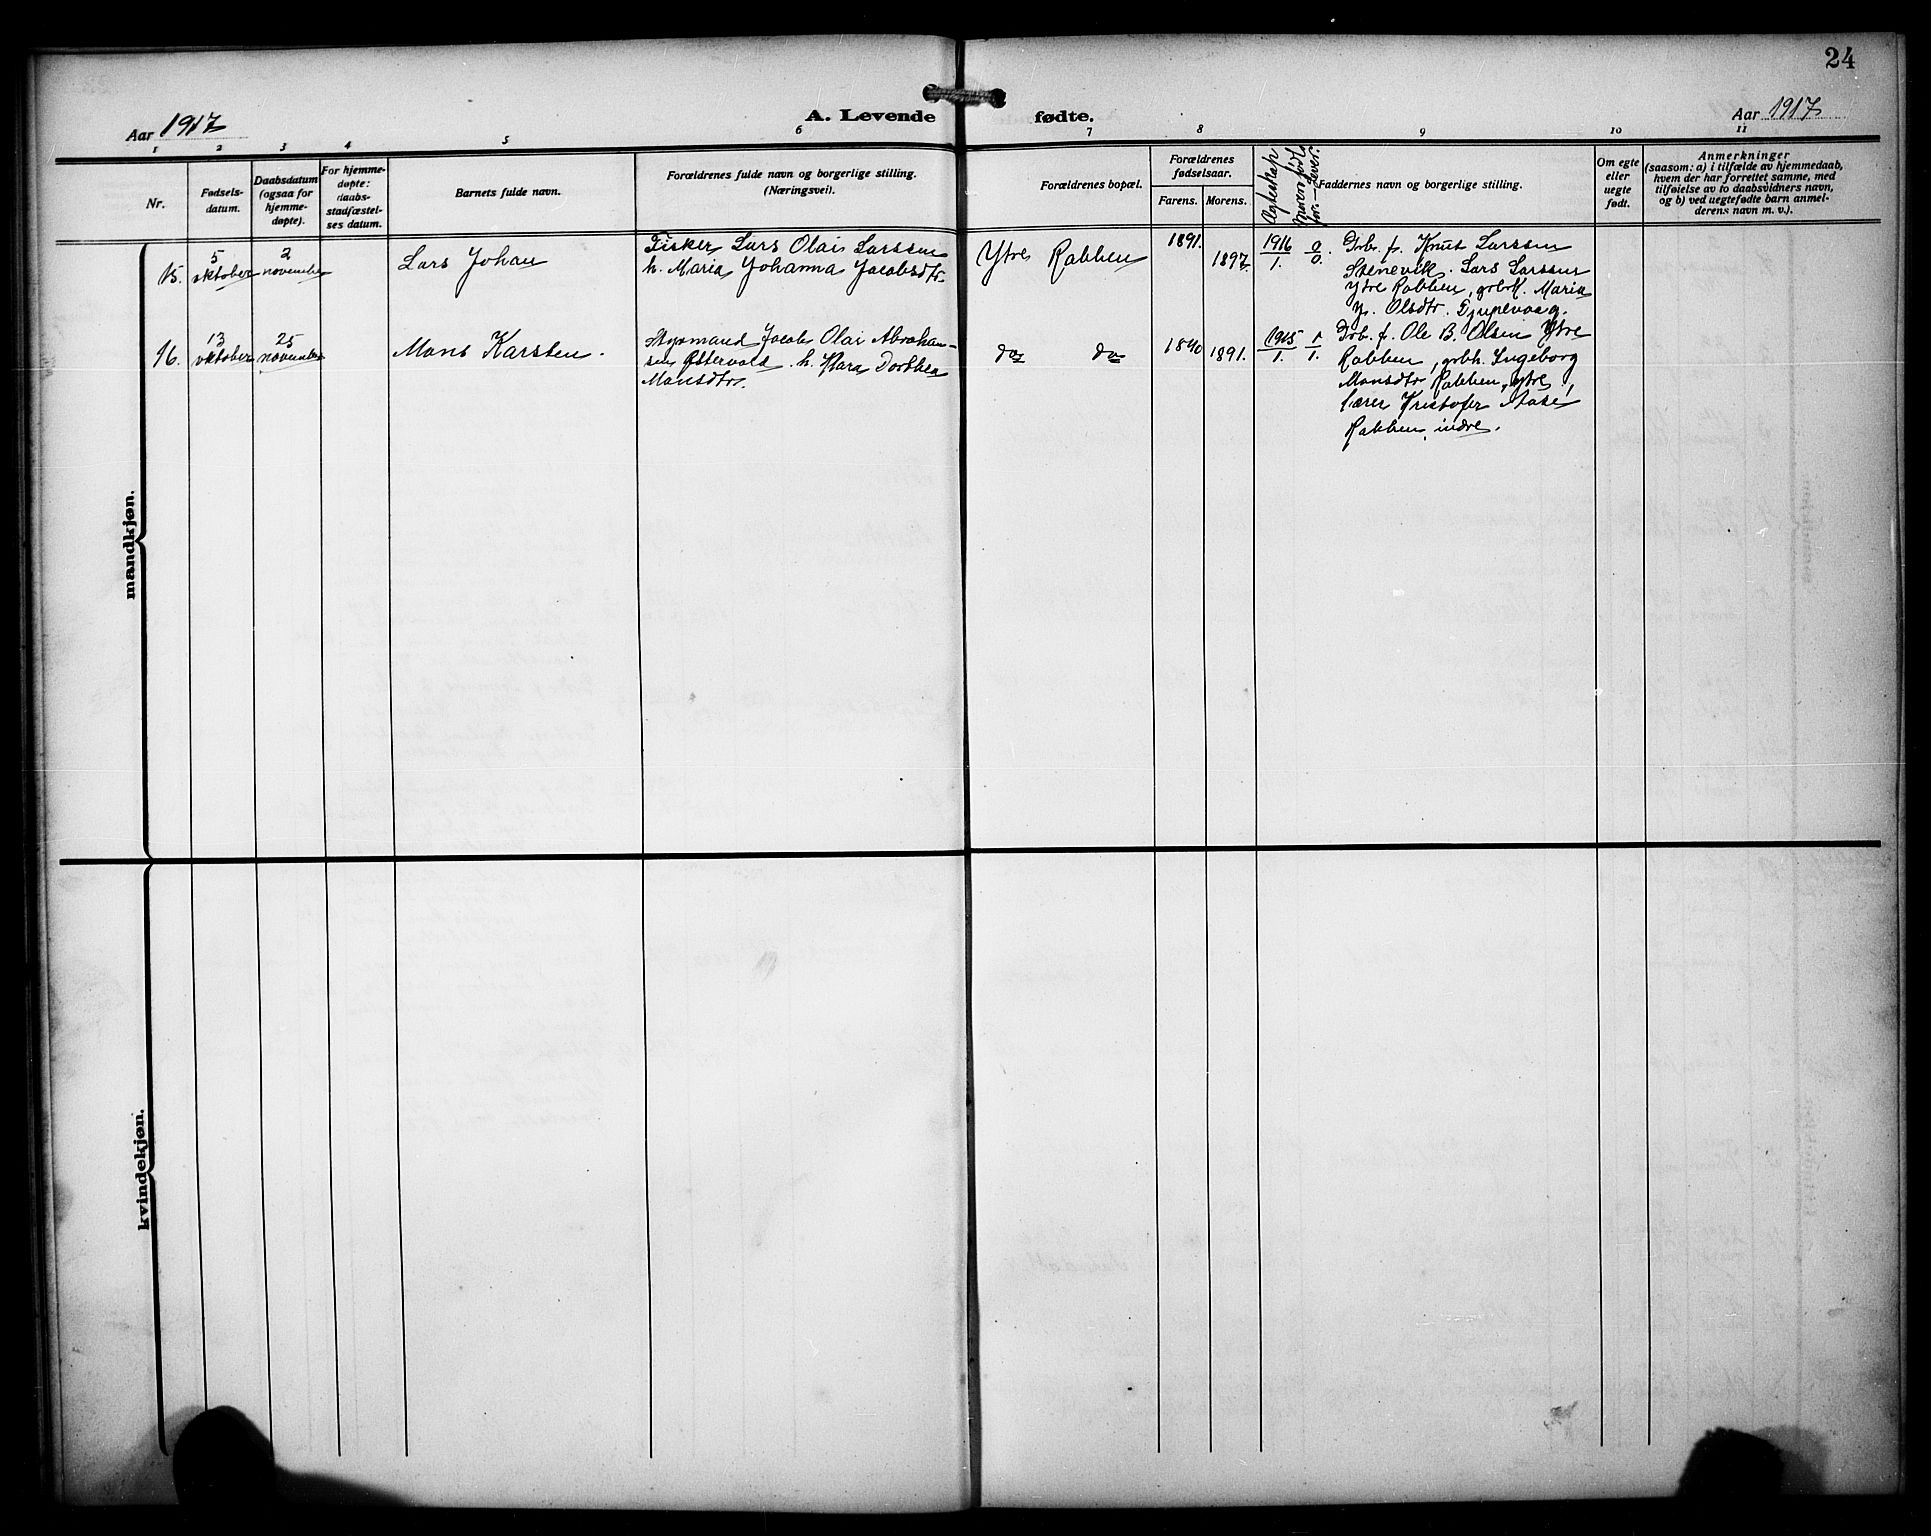 24
Aar 1917
A. Levende fødte.
Aar 1917
1 2 3 4 5 6 7 8 9 10 11
Nr.
Fødsels-
datum.
Daabsdatum
(ogsaa for
hjemme-
døpte).
For hjemme-
døpte:
daabs-
stadfæstel-
ses datum.
Barnets fulde navn.
Forældrenes fulde navn og borgerlige stilling.
(Næringsvei).
Forældrenes bopæl.
Forældrenes
fødselsaar.
Farens. Morens.
Faddernes navn og borgerlige stilling.
Om egte
eller
uegte
født.
Anmerkninger
(saasom: a) i tilfælde av hjemmedaab,
hvem der har forrettet samme, med
tilføielse av to daabsvidners navn,
og b) ved uegtefødte barn anmel-
derens navn m. v.).
mandkjøn.
15.
5
oktober
2
november
Lars Johan
Fisker Lars Olai Larssen
h. Maria Johanna Jacobsdtr.
Ytre Rabben
1891.
1897.
1916
1.
0
0.
Grb. f. Knut Larssen
Stenevik. Lars Larssen
Ytre Rabben, grbrk. Maria
J. Olsdtr. Gjupevaag.
16.
13
oktober
25
november
Mons Karsten.
Styrmand Jacob Olai Abraham-
sen Østervold. h. Klara Dorthea
Monsdtr.
do do
1890
1891.
1915
1.
1
1.
Grb. f. Ole B. Olsen Ytre
Rabben, grbh. Ingeborg
Monsdtr Rabben, ytre,
lærer Kristofer
Rabben, indre.
kvindekjøn.